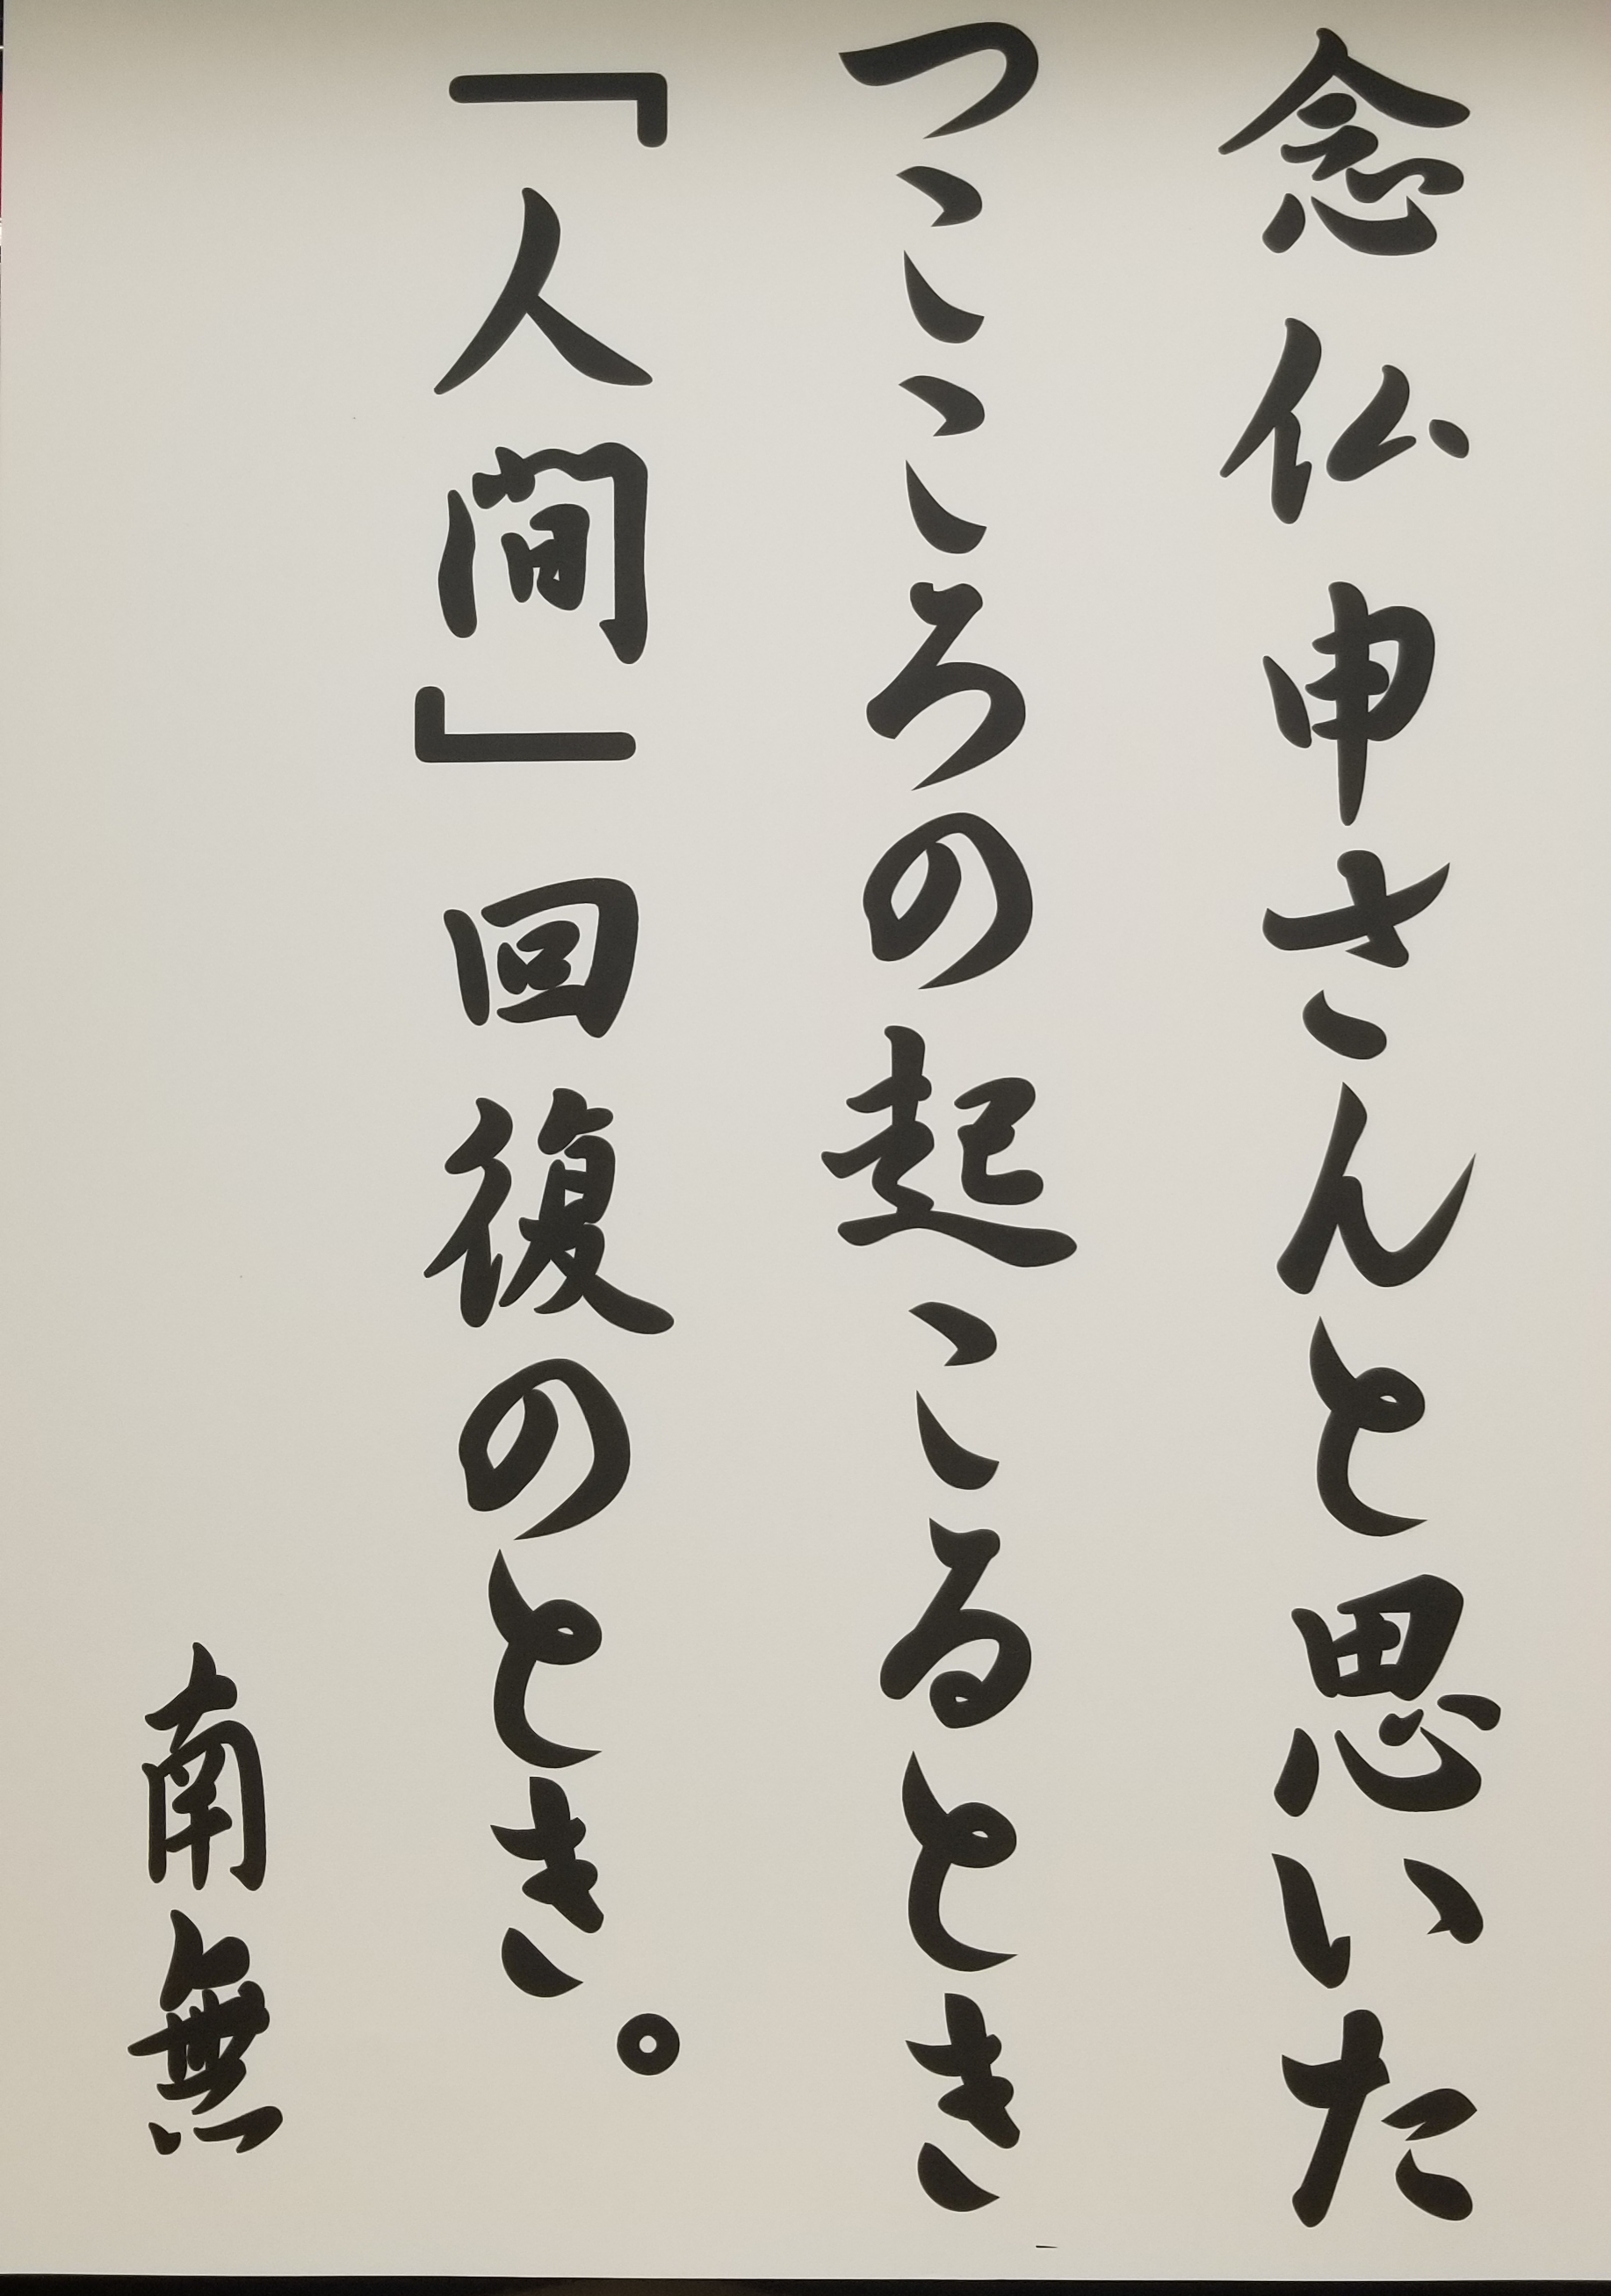 念仏申さんと思いた
つこころの起こるとき
「人間」回復のとき。
南無